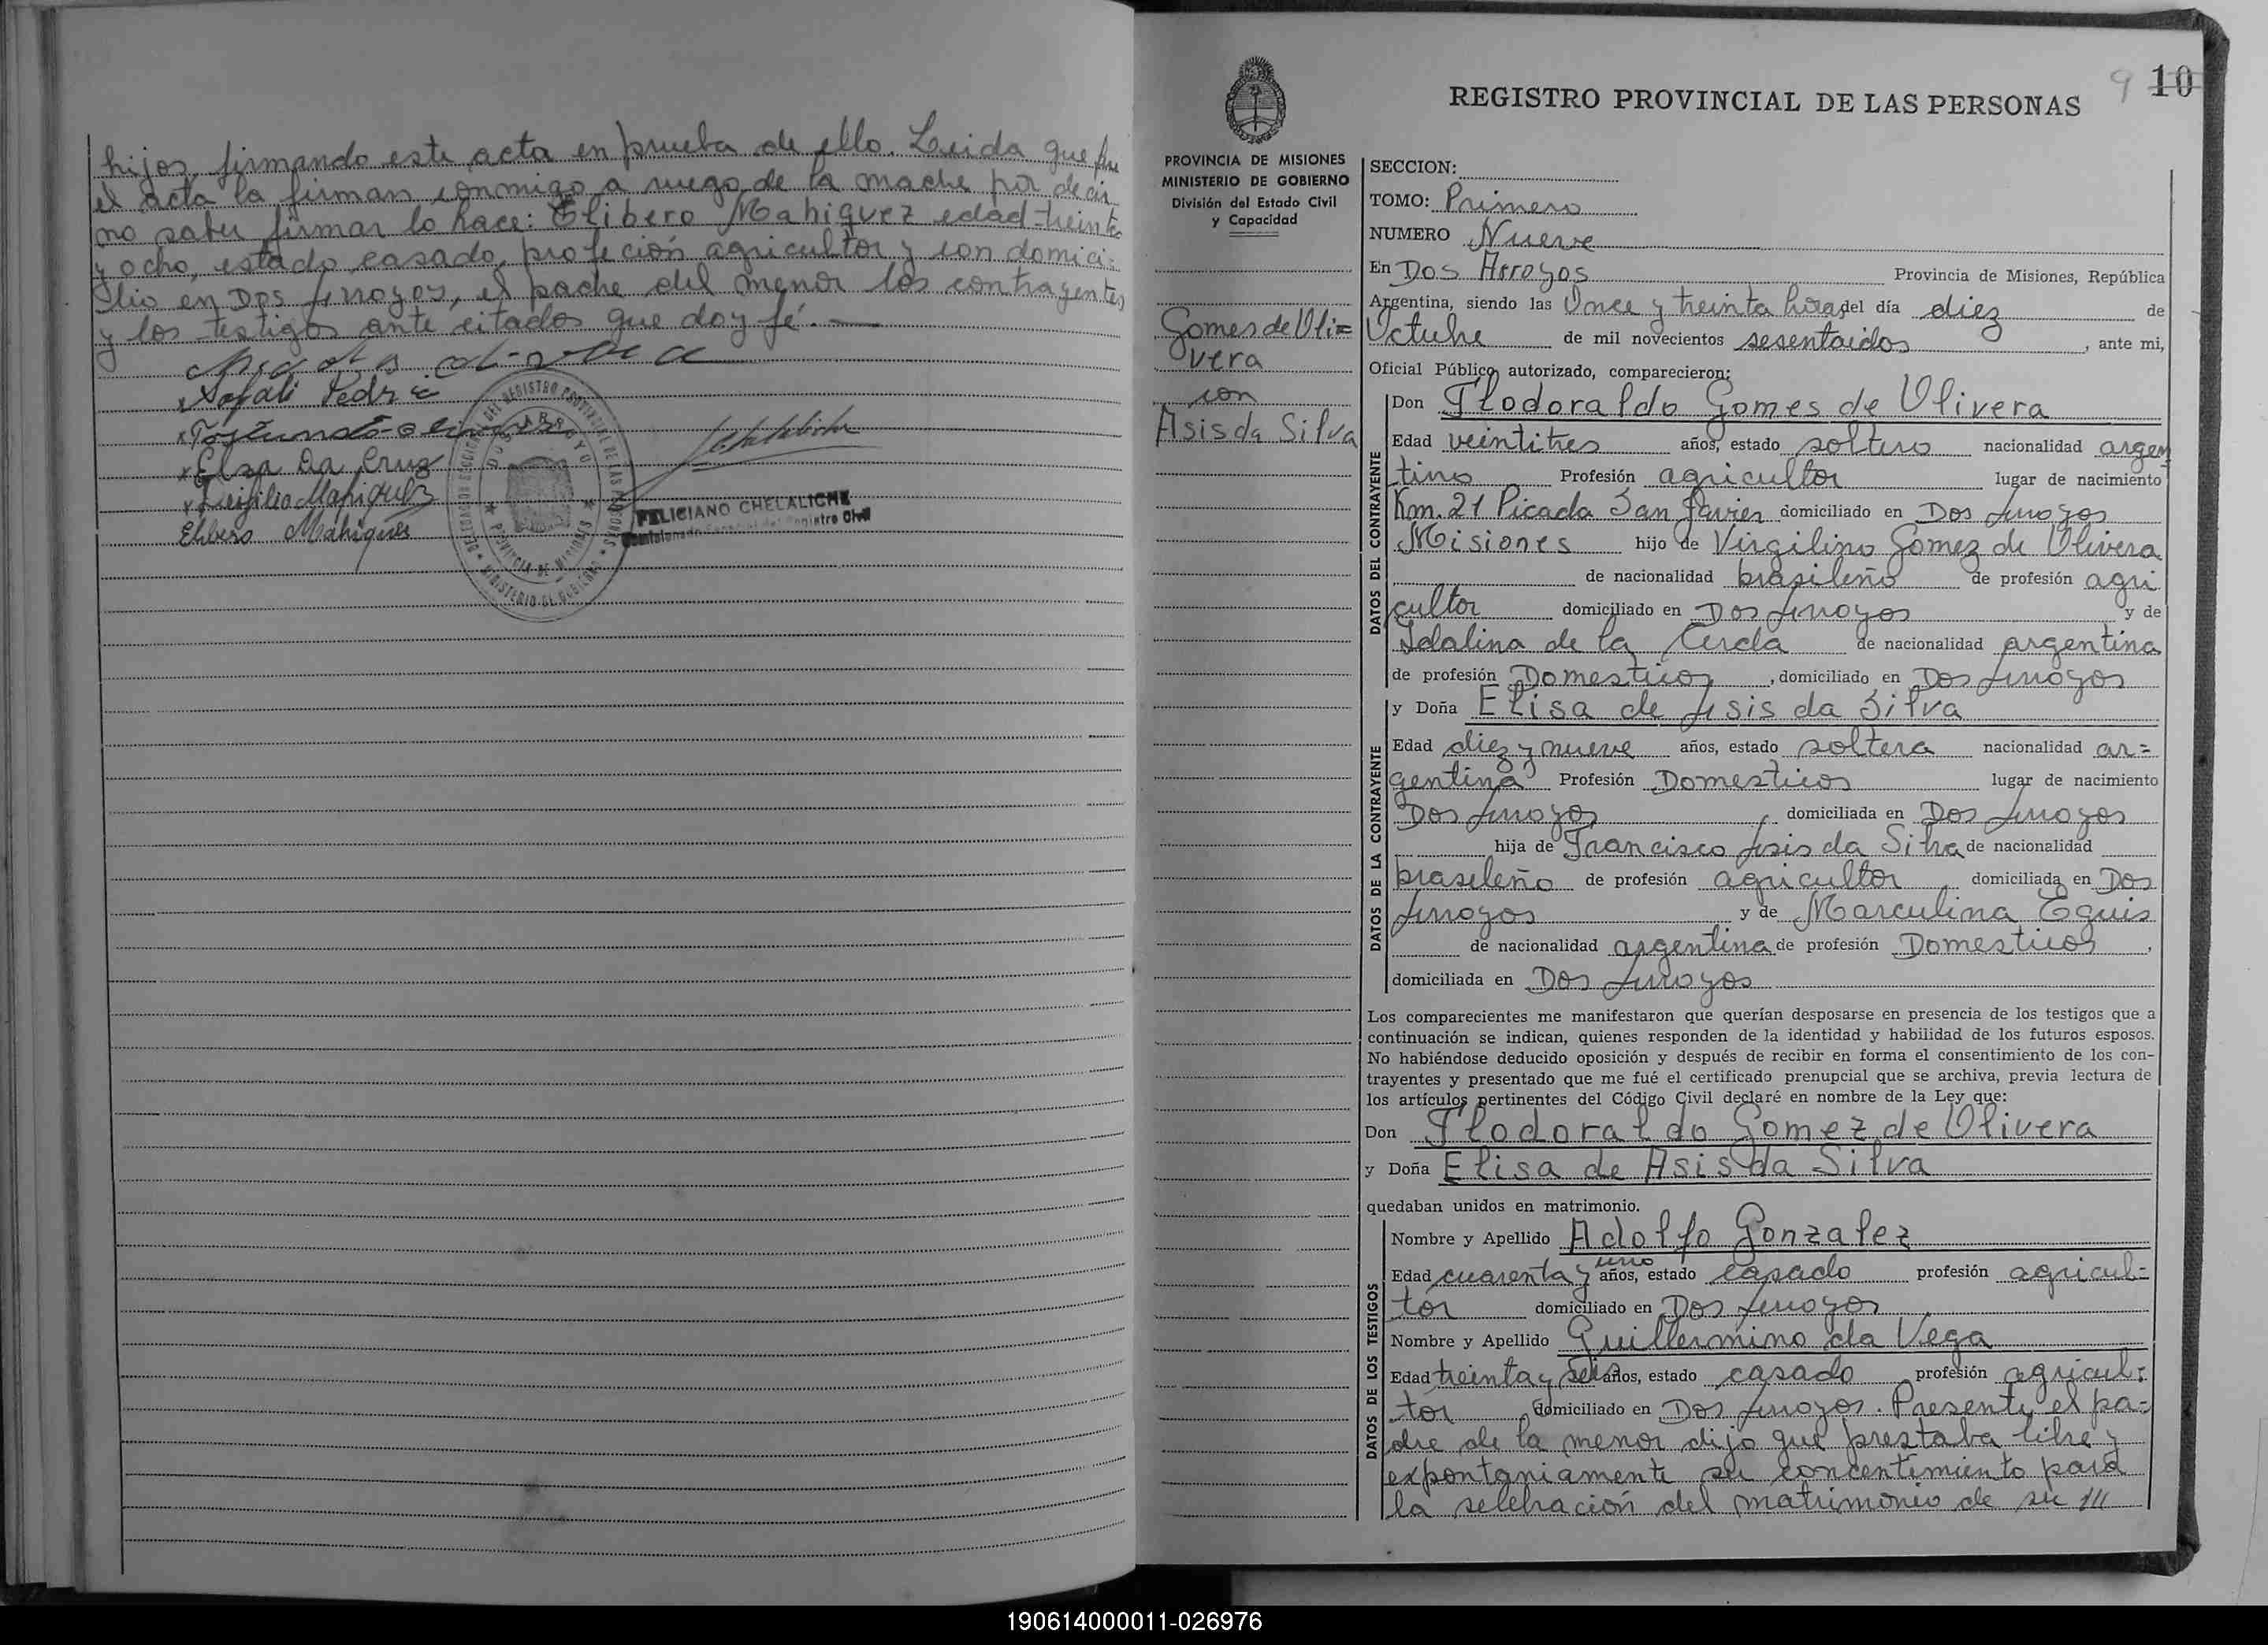 hijos, firmando este acta en prueba de ello. Leida que fue
el acta la firman conmigo a ruego de la madre por decir
no saber firmar lo hace: Elibero Mahiquez edad treinta
y ocho, estado casado, profeción agricultor y con domici-
lio en Dos Arroyos, el padre del menor los contrayentes
y los testigos ante citados que doy fé.
Elsa Da Cruz
Elibero Mahiques
DOS ARROYOS
PROVINCIA DE MISIONES
MINISTERIO DE GOBIERNO
FELICIANO CHELALICHE
9 10
REGISTRO PROVINCIAL DE LAS PERSONAS
PROVINCIA DE MISIONES
MINISTERIO DE GOBIERNO
División del Estado Civil
y Capacidad
Gomes de Oli=
vera
con
Asis da Silva
SECCION:
TOMO: Primero
NUMERO Nueve
En Dos Arroyos Provincia de Misiones, República
Argentina, siendo las Once y treinta horas del día diez de
Octubre de mil novecientos sesentaidos, ante mi,
Oficial Público autorizado, comparecieron:
DATOS DEL CONTRAYENTE
Don Flodoraldo Gomes de Olivera
Edad veintitres años, estado soltero nacionalidad argen
tino Profesión agricultor lugar de nacimiento
Km. 21 Picada San Javier domiciliado en Dos Arroyos
Misiones hijo de Virgilino Gomez de Olivera
de nacionalidad brasileño de profesión agri
cultor domiciliado en Dos Arroyos y de
Idalina de la Cerda de nacionalidad argentina
de profesión Domesticos, domiciliado en Dos Arroyos
DATOS DE LA CONTRAYENTE
y Doña Elisa de Asis da Silva
Edad diez y nueve años, estado soltera nacionalidad ar=
gentina Profesión Domesticos lugar de nacimiento
Dos Arroyos, domiciliada en Dos Arroyos
hija de Francisco Asis da Silva de nacionalidad
brasileño de profesión agricultor domiciliada en Dos
Arroyos y de Marculina Equis
de nacionalidad argentina de profesión Domesticos,
domiciliada en Dos Arroyos
Los comparecientes me manifestaron que querían desposarse en presencia de los testigos que a
continuación se indican, quienes responden de la identidad y habilidad de los futuros esposos.
No habiéndose deducido oposición y después de recibir en forma el consentimiento de los con-
trayentes y presentado que me fué el certificado prenupcial que se archiva, previa lectura de
los artículos pertinentes del Código Civil declaré en nombre de la Ley que:
Don Flodoraldo Gomez de Olivera
y Doña Elisa de Asis da Silva
quedaban unidos en matrimonio.
DATOS DE LOS TESTIGOS
Nombre y Apellido Adolfo Gonzalez
Edad cuarenta y uno años, estado casado profesión agricul=
tor domiciliado en Dos Arroyos
Nombre y Apellido Guillermino da Vega
Edad treinta y seis años, estado casado profesión agricul=
tor domiciliado en Dos Arroyos. Presente el pa=
dre de la menor dijo que prestaba libre y
expontaniamente su concentimiento para
la selebración del matrimonio de su ///
190614000011-026976